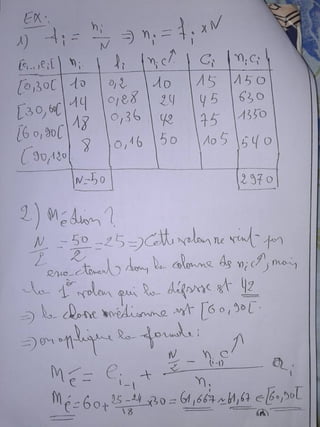 EX:
1) fi = ni/N => ni = fi × N
[ei-1, ei[ | ni | fi | nic↗ | Ci | niCi
[0,30[ | 10 | 0,2 | 10 | 15 | 150
[30,60[ | 14 | 0,28 | 24 | 45 | 630
[60,90[ | 18 | 0,36 | 42 | 75 | 1350
[90,120 | 8 | 0,16 | 50 | 105 | 540
N=50 2970
2) Médian?
N/2 = 50/2 = 25 => Cette valeur ne vient pas
exactement dans la colonne des nic↗, mais
la 1er valeur qui la dépasse est 42
=> la classe médianne est [60,90[.
=> on applique la formule:
Mé = ei-1 + (N/2 - n(i-1)c↗)/ni ai
Mé = 60 + (25-24)/18 × 30 = 61,667 ≈ 61,67 ∈ [60,90[